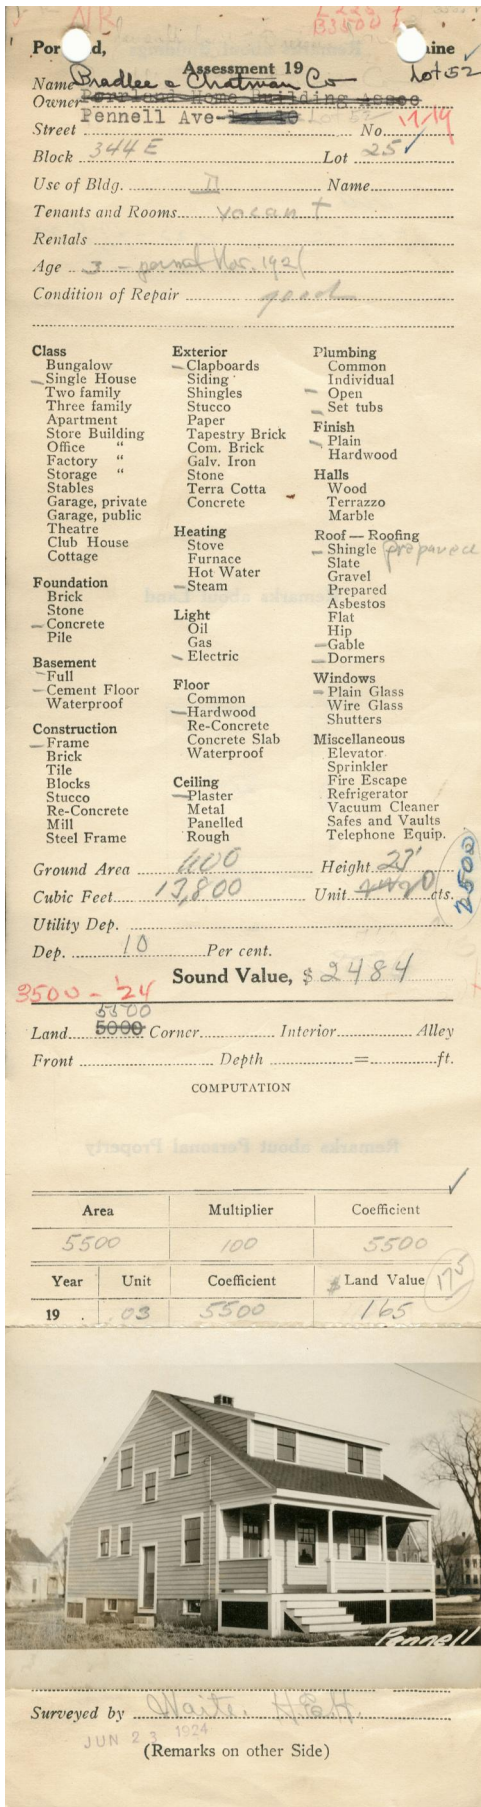 NR
B3500
Portland, Maine
Assessment 19
Lot 52
Name Bradlee & Chatman Co
Owner Portland Home Building Assoc
Pennell Ave Lot 10 Lot 52
Street No. 17-19
Block 344 E Lot 25
Use of Bldg. D Name
Tenants and Rooms vacant
Rentals
Age 3 - permit Nov. 1921
Condition of Repair good
Class
Bungalow
Single House
Two family
Three family
Apartment
Store Building
Office "
Factory "
Storage "
Stables
Garage, private
Garage, public
Theatre
Club House
Cottage
Foundation
Brick
Stone
Concrete
Pile
Basement
Full
Cement Floor
Waterproof
Construction
Frame
Brick
Tile
Blocks
Stucco
Re-Concrete
Mill
Steel Frame
Exterior
Clapboards
Siding
Shingles
Stucco
Paper
Tapestry Brick
Com. Brick
Galv. Iron
Stone
Terra Cotta
Concrete
Heating
Stove
Furnace
Hot Water
Steam
Light
Oil
Gas
Electric
Floor
Common
Hardwood
Re-Concrete
Concrete Slab
Waterproof
Ceiling
Plaster
Metal
Panelled
Rough
Plumbing
Common
Individual
Open
Set tubs
Finish
Plain
Hardwood
Halls
Wood
Terrazzo
Marble
Roof — Roofing
Shingle prepared
Slate
Gravel
Prepared
Asbestos
Flat
Hip
Gable
Dormers
Windows
Plain Glass
Wire Glass
Shutters
Miscellaneous
Elevator
Sprinkler
Fire Escape
Refrigerator
Vacuum Cleaner
Safes and Vaults
Telephone Equip.
Ground Area 600 Height 23'
Cubic Feet 13,800 Unit 20 cts.
2500
Utility Dep.
Dep. 10 Per cent.
Sound Value, $ 2484
3500 - '24
5500
Land 5000 Corner Interior Alley
Front Depth = ft.
COMPUTATION
Remarks about Personal Property
Area Multiplier Coefficient
5500 100 5500
Year Unit Coefficient $ Land Value 175
19 .03 5500 165
Pennell
Surveyed by Waite. H.E.H.
JUN 23 1924
(Remarks on other Side)